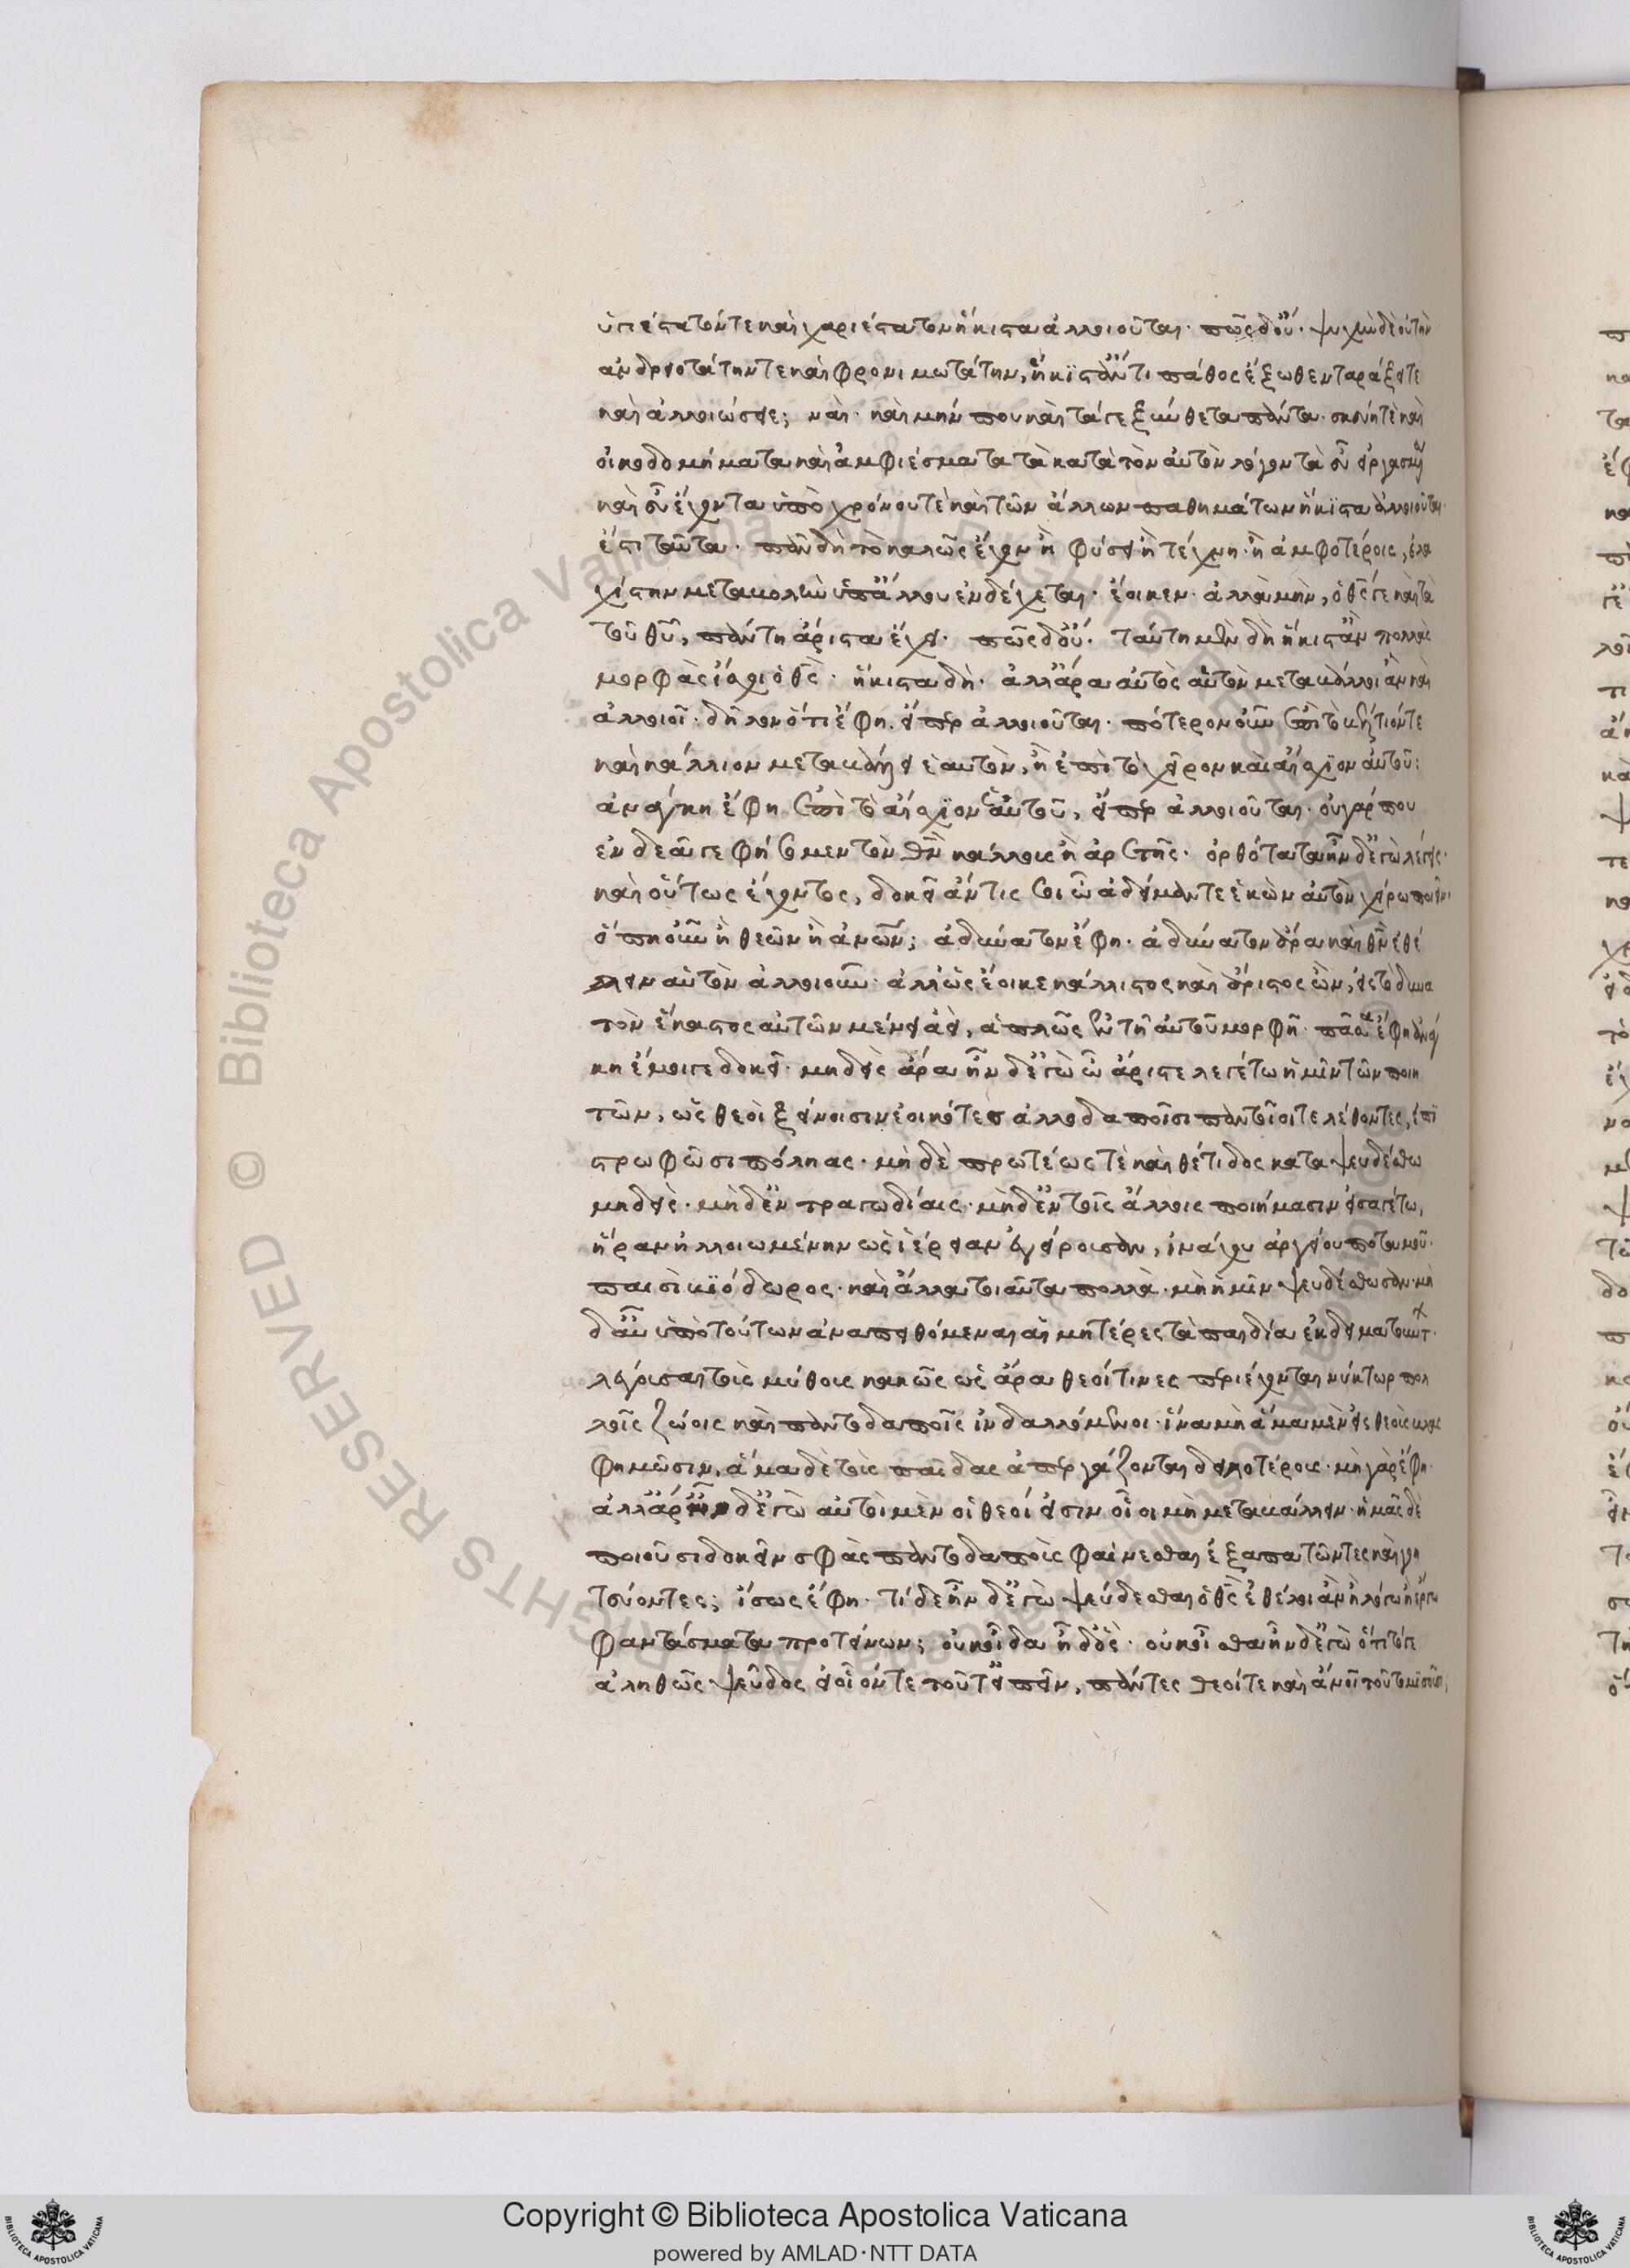 ὑγιέστατόν τε καὶ χαριέστατον ἥκιστα ἀλλοιοῦται. πῶς δ' οὔ. ψυχὴν δὲ οὐ τὴν
ἀνδρειοτάτην τε καὶ φρονιμωτάτην, ἥκιστ' ἄν τι πάθος ἔξωθεν ταράξειέ τε
καὶ ἀλλοιώσειε; ναί. καὶ μήν που καὶ τά γε ξύνθετα πάντα. σκεύη τὲ καὶ
οἰκοδομήματα καὶ ἀμφιέσματα τὰ κατὰ τὸν αὐτὸν λόγον τὰ εὖ εἰργασμένα
καὶ εὖ ἔχοντα ὑπὸ χρόνου τὲ καὶ τῶν ἄλλων παθημάτων ἥκιστα ἀλλοιοῦται.
ἔστι ταῦτα. πᾶν δὴ τὸ καλῶς ἔχον ἢ φύσει ἢ τέχνη. ἢ ἀμφοτέροις, ἐλα
χίστην μεταβολὴν ὑπ' ἄλλου ἐνδέχεται. ἔοικεν. ἀλλὰ μὴν, ὁ θεός γε καὶ τὰ
τοῦ θεοῦ, πάντη ἄριστα ἔχει. πῶς δ' οὔ. ταύτη μὲν δὴ ἥκιστ' ἂν πολλὰς
μορφὰς ἴσχοι ὁ θεός. ἥκιστα δή. ἀλλ' ἄρα αὐτὸς αὑτὸν μεταβάλλοι ἂν καὶ
ἀλλοιοῖ. δῆλον ὅτι ἔφη. εἴπερ ἀλλοιοῦται. πότερον οὖν ἐπὶ τὸ βέλτιόν τε
καὶ κάλλιον μεταβάλλει ἑαυτὸν, ἢ ἐπὶ τὸ χεῖρον καὶ αἴσχιον αὑτοῦ:
ἀνάγκη ἔφη ἐπὶ τὸ αἴσχιον ἑαυτοῦ, εἴπερ ἀλλοιοῦται. οὐ γάρ που
ἐνδεᾶ γε φήσομεν τὸν θεὸν κάλλους ἢ ἀρετῆς. ὀρθότατα ἦν δ' ἐγὼ λέγεις.
καὶ οὕτως ἔχοντος, δοκεῖ ἄν τίς σοι ὦ ἀδείμαντε ἑκὼν αὑτὸν χείρω ποιεῖν.
ὁπηοῦν ἢ θεῶν ἢ ἀνθρώπων; ἀδύνατον ἔφη. ἀδύνατον ἄρα καὶ θεῷ ἐθέ
λειν αὑτὸν ἀλλοιοῦν. ἀλλ' ὡς ἔοικε κάλλιστος καὶ ἄριστος ὢν, εἰς τὸ δυνα
τὸν ἕκαστος αὐτῶν μένει ἀεὶ, ἁπλῶς ἐν τῇ αὑτοῦ μορφῇ. πᾶσα ἔφη ἀνάγ
κη ἔμοιγε δοκεῖ. μηδεὶς ἄρα ἦν δ' ἐγὼ ὦ ἄριστε λεγέτω ἡμῖν τῶν ποιη
τῶν, ὡς θεοὶ ξείνοισιν ἐοικότες ἀλλοδαποῖσι παντοῖοι τελέθοντες, ἐπι
στρωφῶσι πόληας. μὴ δὲ πρωτέως τὲ καὶ θέτιδος καταψευδέσθω
μηδεὶς. μὴδ' ἐν τραγωδίαις. μὴδ' ἐν τοῖς ἄλλοις ποιήμασιν εἰσαγέτω,
ἥραν ἠλλοιωμένην ὡς ἱέρειαν ἀγείρουσαν, ἰνάχου ἀργείου ποταμοῦ.
παισὶ βιόδωρος. καὶ ἄλλα τοιαῦτα πολλὰ. μὴ ἡμῖν ψευδέσθωσαν. μὴ
δ' αὖ ὑπὸ τούτων ἀναπειθόμεναι αἱ μητέρες τὰ παιδία ἐκδειματούντων.
λέγουσαι τοὺς μύθους κακῶς ὡς ἄρα θεοί τινες περιέρχονται νύκτωρ πολ
λοῖς ζώοις καὶ παντοδαποῖς ἰνδαλλόμενοι. ἵνα μὴ ἅμα μὲν εἰς θεοὺς βλασ
φημῶσιν, ἅμα δὲ τοὺς παῖδας ἀπεργάζονται δειλοτέρους. μὴ γὰρ ἔφη.
ἀλλ' ἄρ' ἦν δ' ἐγὼ αὐτοὶ μὲν οἱ θεοί εἰσιν οἷοι μὴ μεταβάλλειν. ἡμᾶς δὲ
ποιοῦσι δοκεῖν σφᾶς παντοδαποὺς φαίνεσθαι ἐξαπατῶντες καὶ γοη
τεύοντες; ἴσως ἔφη. τί δε ἦν δ' ἐγὼ ψεύδεσθαι ὁ θεὸς ἐθέλοι ἂν ἢ λόγω ἢ ἔργω
φαντάσματα προτείνων; οὐκ οἶδα ἦ δ' ὅς. οὐκ οἶσθα ἦν δ' ἐγὼ ὅτι τό γε
ἀληθῶς ψεῦδος εἰ οἷόν τε τοῦτ' εἰπεῖν, πάντες θεοί τε καὶ ἄνθρωποι τοῦτο μισοῦσι;